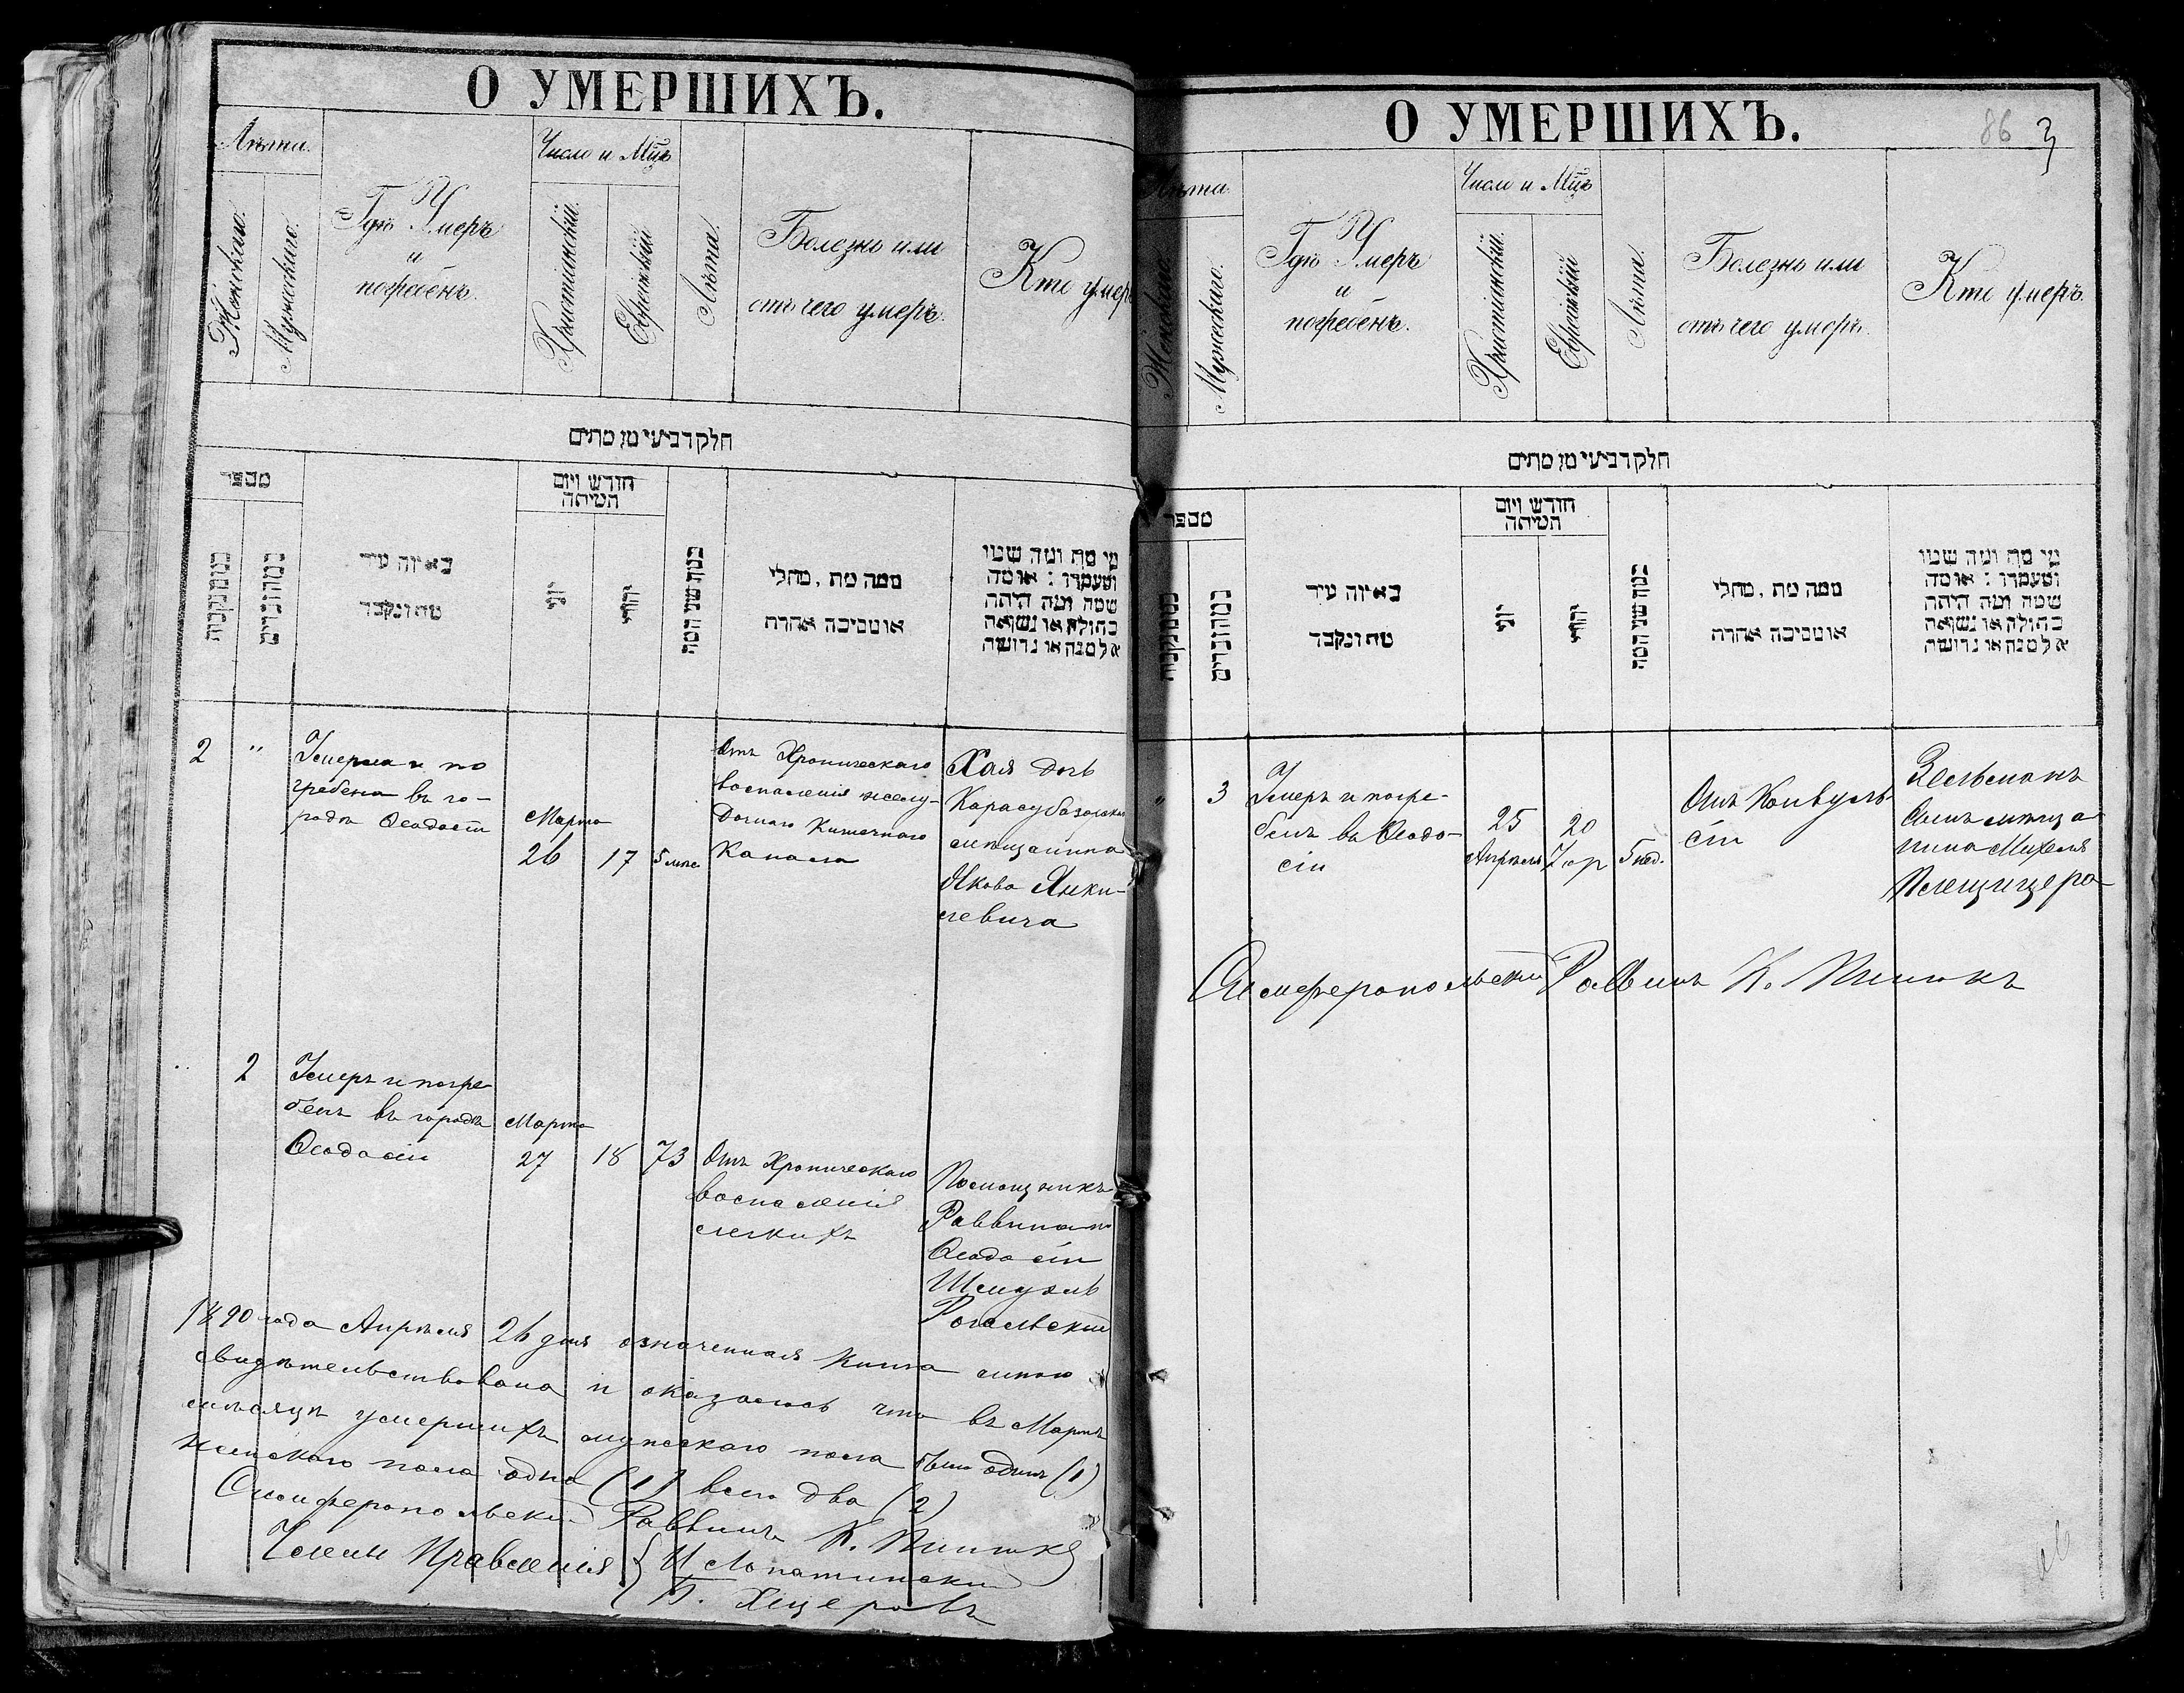 О УМЕРШИХЪ.
Лѣта.
Женскаго.
Мужескаго.
Гдѣ Умеръ
и
погребенъ.
Число и Мцъ
Христіанскій.
Еврейскій
Лѣта.
Болезнь или
отъ чего умеръ.
Кто умеръ
חלק רביעי מן מתים
מספר
ממין נקבות
ממין זכרים
באיזה עיר
מת ונקבר
חודש ויום
המיתה
יוני
יהודי
ממה מת, מחלי
או מסיבה אחרת
מי מת ומה שמו
ומעמדו : או מה
שמה ומה היתה
בתולה או נשואה
אלמנה או גרושה
2
"
Умерла и по
гребена въ го-
родѣ Ѳеодосіи
Марта
26
17
5 мѣс
Отъ Хроническаго
воспаленія желу-
дочнаго Кишечнаго
Канала
Хая дочь
Карасубазарскаго
мѣщанина
Якова Янки-
левича
"
2
Умеръ и погре-
бенъ въ городѣ
Ѳеодосіи
Марта
27
18
73
Отъ Хроническаго
воспаленія
легкихъ
Помощникъ
Раввина въ
Ѳеодосіи
Шмуэль
Рогальскій
1890 года Апрѣля 26 дня означенная книга мною
свидѣтельствована и оказалось что въ Мартѣ
мѣсяцѣ умершихъ мужескаго пола былъ одинъ (1)
женскаго пола одна (1) всего два (2)
Симферопольскій Раввинъ К. Пинскъ
Члены Правленія { И Лопатинскій
О УМЕРШИХЪ.
86 3
Лѣта.
Женскаго
Мужескаго.
Гдѣ Умеръ
и
погребенъ.
Число и Мцъ
Христіанскій.
Еврейскій
Лѣта.
Болезнь или
отъ чего умеръ.
Кто умеръ.
חלק רביעי מן מתים
מספר
ממין נקבות
ממין זכרים
באיזה עיר
מת ונקבר
חודש ויום
המיתה
יוני
יהודי
ממה מת, מחלי
או מסיבה אחרת
מי מת ומה שמו
ומעמדו : או מה
שמה ומה היתה
בתולה או נשואה
אלמנה או גרושה
"
3
Умеръ и погре-
бенъ въ Ѳеодо-
сіи
25
Апрѣля
20
Іюр
5 нед.
Отъ Конвуль-
сіи
Зельманъ
сынъ мѣща
нина Михеля
Плещицера
Симферопольскій Раввинъ К. Пинскъ